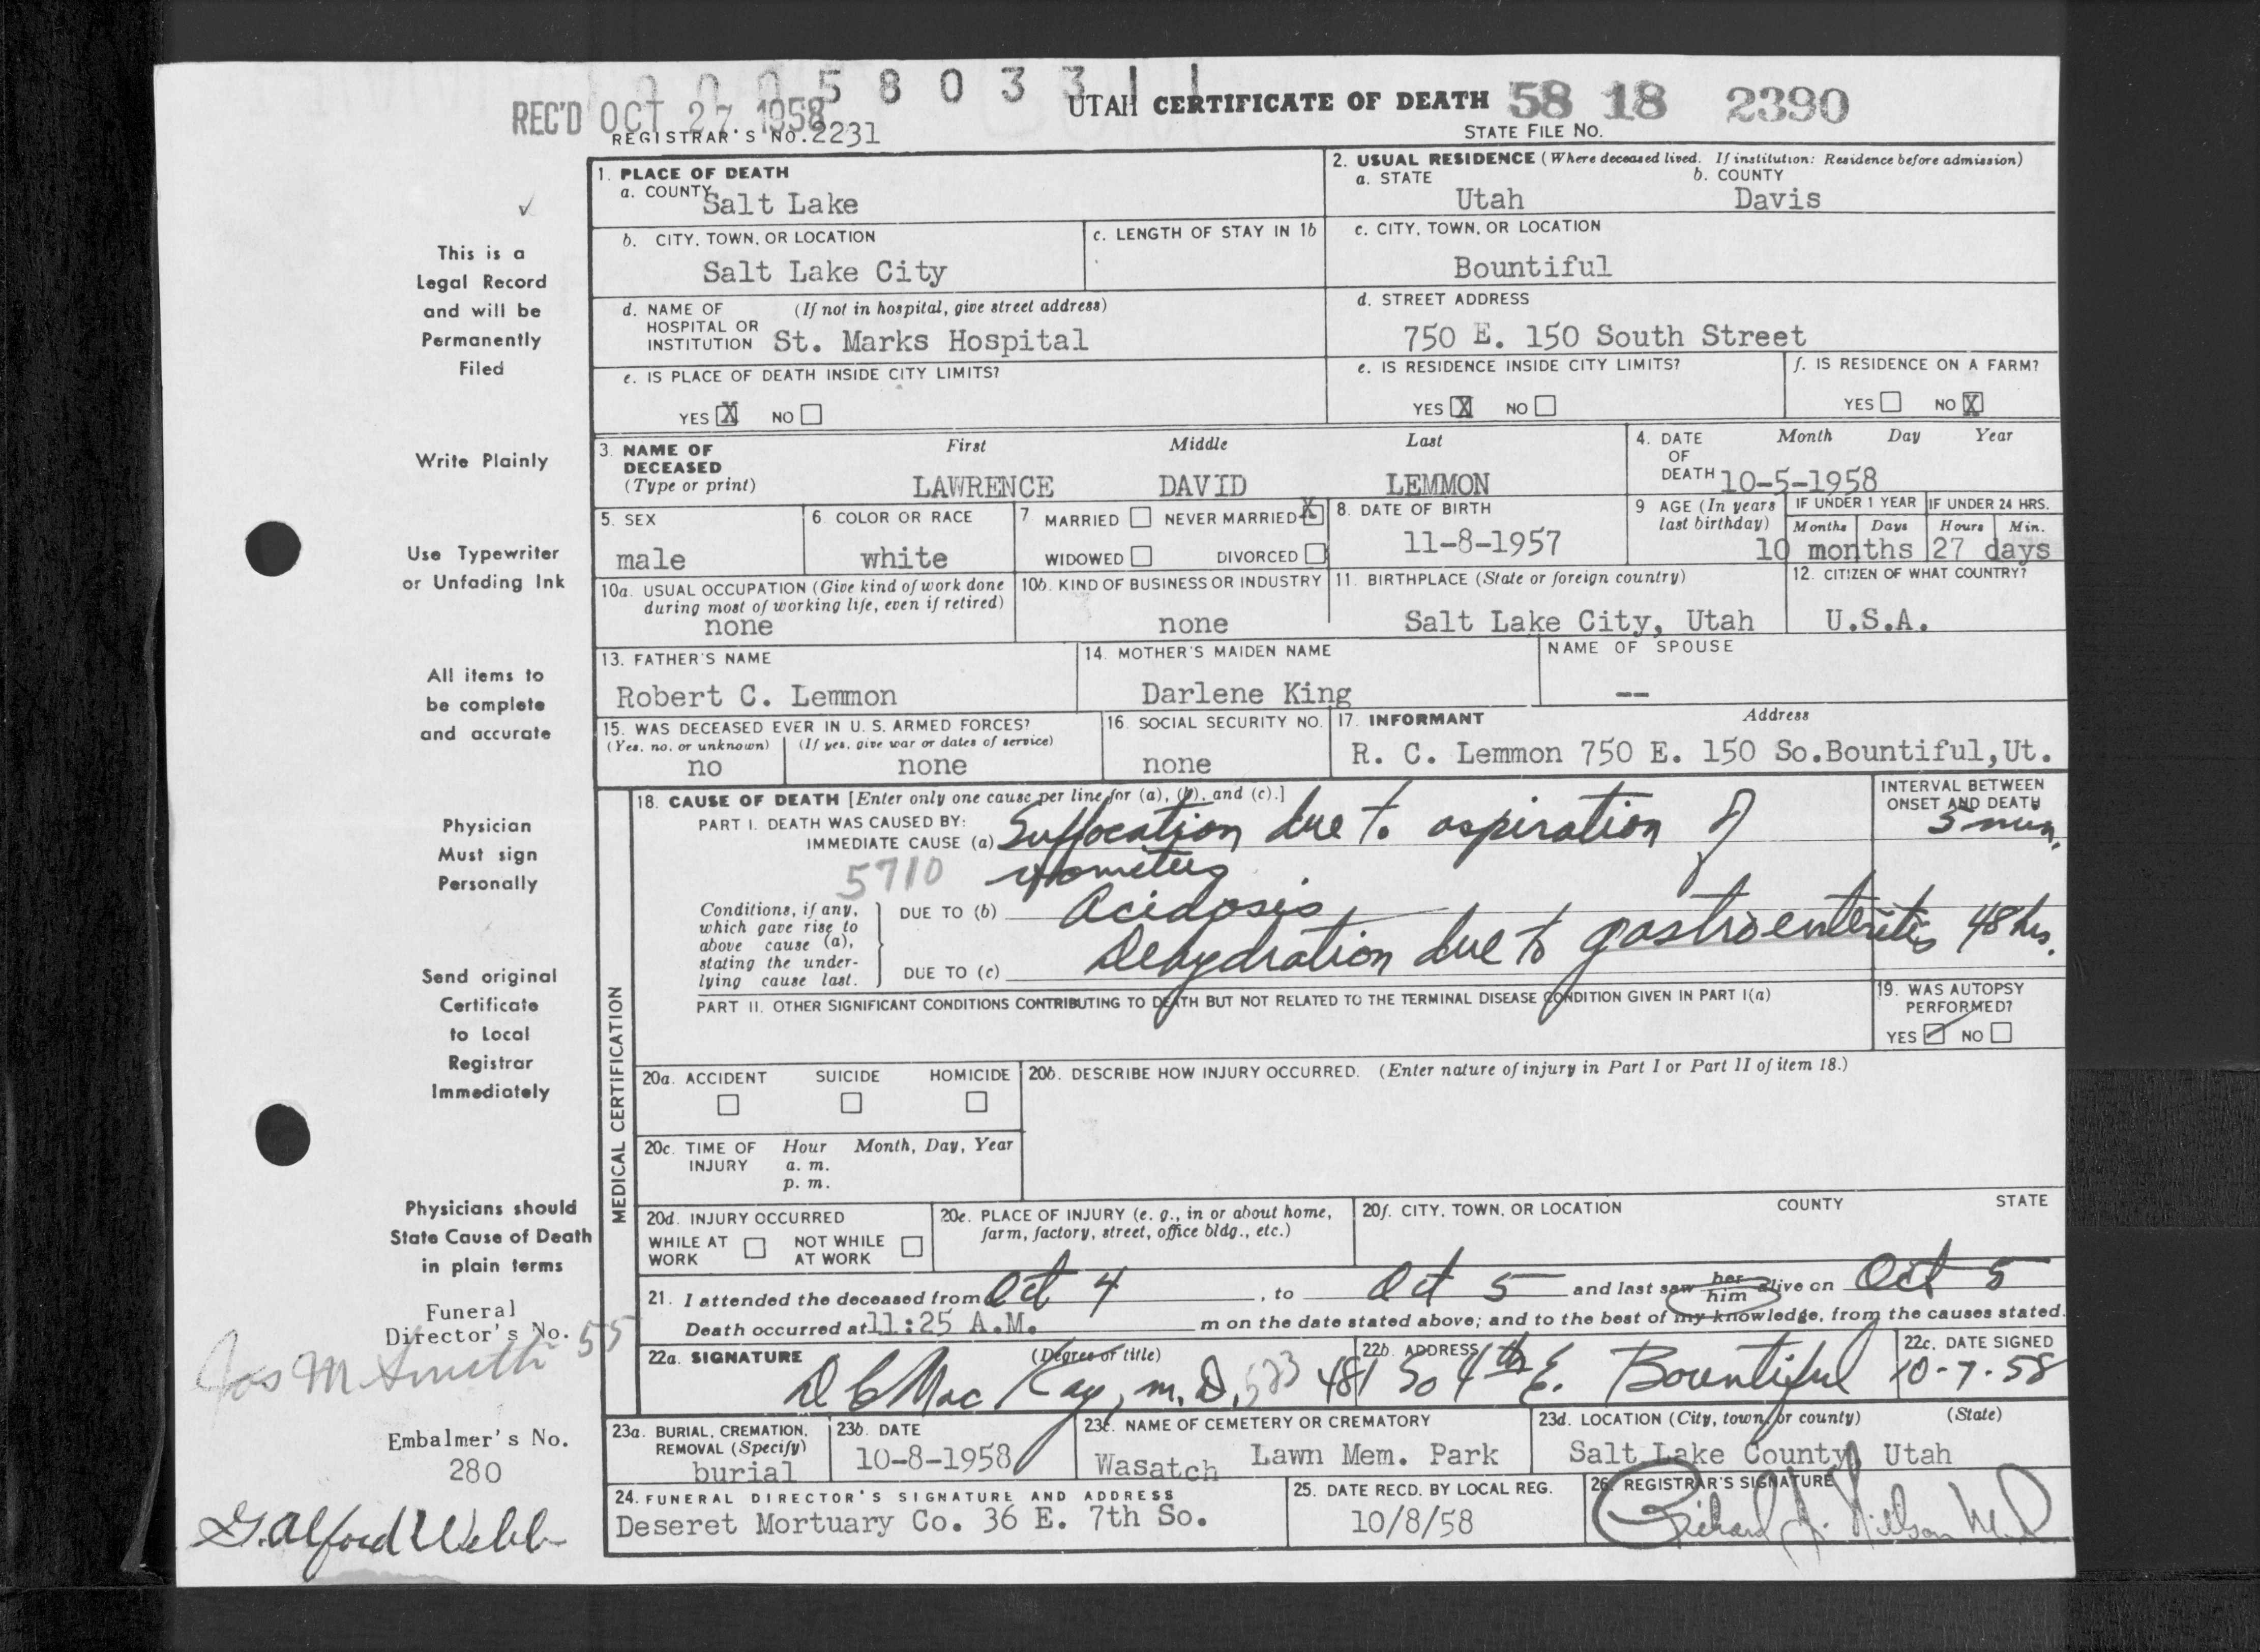 0 0 0 5 8 0 3 3 1 1
REC'D OCT 27 1958
UTAH CERTIFICATE OF DEATH 58 18 2390
REGISTRAR'S NO. 2231
STATE FILE NO.
1. PLACE OF DEATH
a. COUNTY Salt Lake
2. USUAL RESIDENCE (Where deceased lived. If institution: Residence before admission)
a. STATE Utah b. COUNTY Davis
b. CITY, TOWN, OR LOCATION Salt Lake City
c. LENGTH OF STAY IN 1b
c. CITY, TOWN, OR LOCATION Bountiful
d. NAME OF HOSPITAL OR INSTITUTION (If not in hospital, give street address) St. Marks Hospital
d. STREET ADDRESS 750 E. 150 South Street
e. IS PLACE OF DEATH INSIDE CITY LIMITS?
YES X NO
e. IS RESIDENCE INSIDE CITY LIMITS?
YES X NO
f. IS RESIDENCE ON A FARM?
YES NO X
3. NAME OF DECEASED (Type or print)
First Middle Last
LAWRENCE DAVID LEMMON
4. DATE OF DEATH Month Day Year
10-5-1958
5. SEX male
6. COLOR OR RACE white
7. MARRIED NEVER MARRIED X
WIDOWED DIVORCED
8. DATE OF BIRTH 11-8-1957
9 AGE (In years last birthday) IF UNDER 1 YEAR IF UNDER 24 HRS.
Months Days Hours Min.
10 months 27 days
10a. USUAL OCCUPATION (Give kind of work done during most of working life, even if retired)
none
10b. KIND OF BUSINESS OR INDUSTRY
none
11. BIRTHPLACE (State or foreign country)
Salt Lake City, Utah
12. CITIZEN OF WHAT COUNTRY?
U.S.A.
13. FATHER'S NAME
Robert C. Lemmon
14. MOTHER'S MAIDEN NAME
Darlene King
NAME OF SPOUSE
--
15. WAS DECEASED EVER IN U. S. ARMED FORCES?
(Yes, no, or unknown) (If yes, give war or dates of service)
no none
16. SOCIAL SECURITY NO.
none
17. INFORMANT Address
R. C. Lemmon 750 E. 150 So.Bountiful,Ut.
MEDICAL CERTIFICATION
18. CAUSE OF DEATH [Enter only one cause per line for (a), (b), and (c).]
INTERVAL BETWEEN ONSET AND DEATH
PART I. DEATH WAS CAUSED BY:
IMMEDIATE CAUSE (a) Suffocation due to aspiration of 5 min.
5710 vometus
Conditions, if any, which gave rise to above cause (a), stating the underlying cause last.
DUE TO (b) Acidosis
DUE TO (c) Dehydration due to gastroenteritis 48 hrs.
PART II. OTHER SIGNIFICANT CONDITIONS CONTRIBUTING TO DEATH BUT NOT RELATED TO THE TERMINAL DISEASE CONDITION GIVEN IN PART I(a)
19. WAS AUTOPSY PERFORMED?
YES NO
20a. ACCIDENT SUICIDE HOMICIDE
20b. DESCRIBE HOW INJURY OCCURRED. (Enter nature of injury in Part I or Part II of item 18.)
20c. TIME OF INJURY Hour Month, Day, Year
a. m.
p. m.
20d. INJURY OCCURRED
WHILE AT WORK NOT WHILE AT WORK
20e. PLACE OF INJURY (e. g., in or about home, farm, factory, street, office bldg., etc.)
20f. CITY, TOWN, OR LOCATION COUNTY STATE
21. I attended the deceased from Oct 4, to Oct 5 and last saw her him alive on Oct 5
Death occurred at 11:25 A.M. m on the date stated above; and to the best of my knowledge, from the causes stated.
22a. SIGNATURE (Degree or title)
D C MacKay, M.D. 523
22b. ADDRESS
481 So 4th E. Bountiful
22c. DATE SIGNED
10-7-58
23a. BURIAL, CREMATION, REMOVAL (Specify)
burial
23b. DATE
10-8-1958
23c. NAME OF CEMETERY OR CREMATORY
Wasatch Lawn Mem. Park
23d. LOCATION (City, town, or county) (State)
Salt Lake County Utah
24. FUNERAL DIRECTOR'S SIGNATURE AND ADDRESS
Deseret Mortuary Co. 36 E. 7th So.
25. DATE RECD. BY LOCAL REG.
10/8/58
26. REGISTRAR'S SIGNATURE
This is a
Legal Record
and will be
Permanently
Filed
Write Plainly
Use Typewriter
or Unfading Ink
All items to
be complete
and accurate
Physician
Must sign
Personally
Send original
Certificate
to Local
Registrar
Immediately
Physicians should
State Cause of Death
in plain terms
Funeral
Director's No. 55
Jos M Smith
Embalmer's No.
280
G. Alford Webb